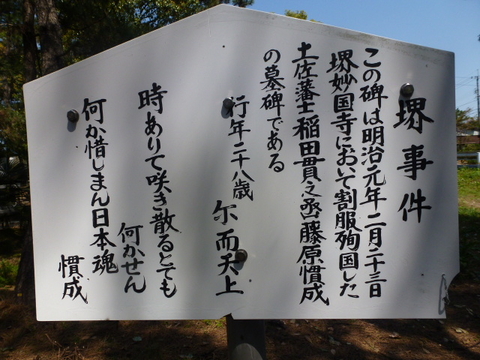 堺事件
この碑は明治元年二月二十三日
堺妙国寺において割服殉国した
土佐藩士稲田貫之丞藤原慣成
の墓碑である
行年二十八歳 尓而天上
時ありて咲き散るとても
何かせん
何か惜しまん日本魂
慣成